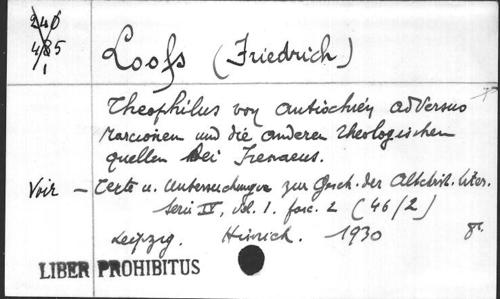 240
485
1
Loofs (Friedrich)
Theophilus von Antiochien adversus
Marcionem und die anderen theologischen
quellen bei Irenaeus.
Voir — Texte u. Untersuchungen zur Gesch. der Altchrist. Liter.
Serie IV, vol. 1. fasc. 2 (46/2)
Leipzig. Hinrich. 1930
8º.
LIBER PROHIBITUS